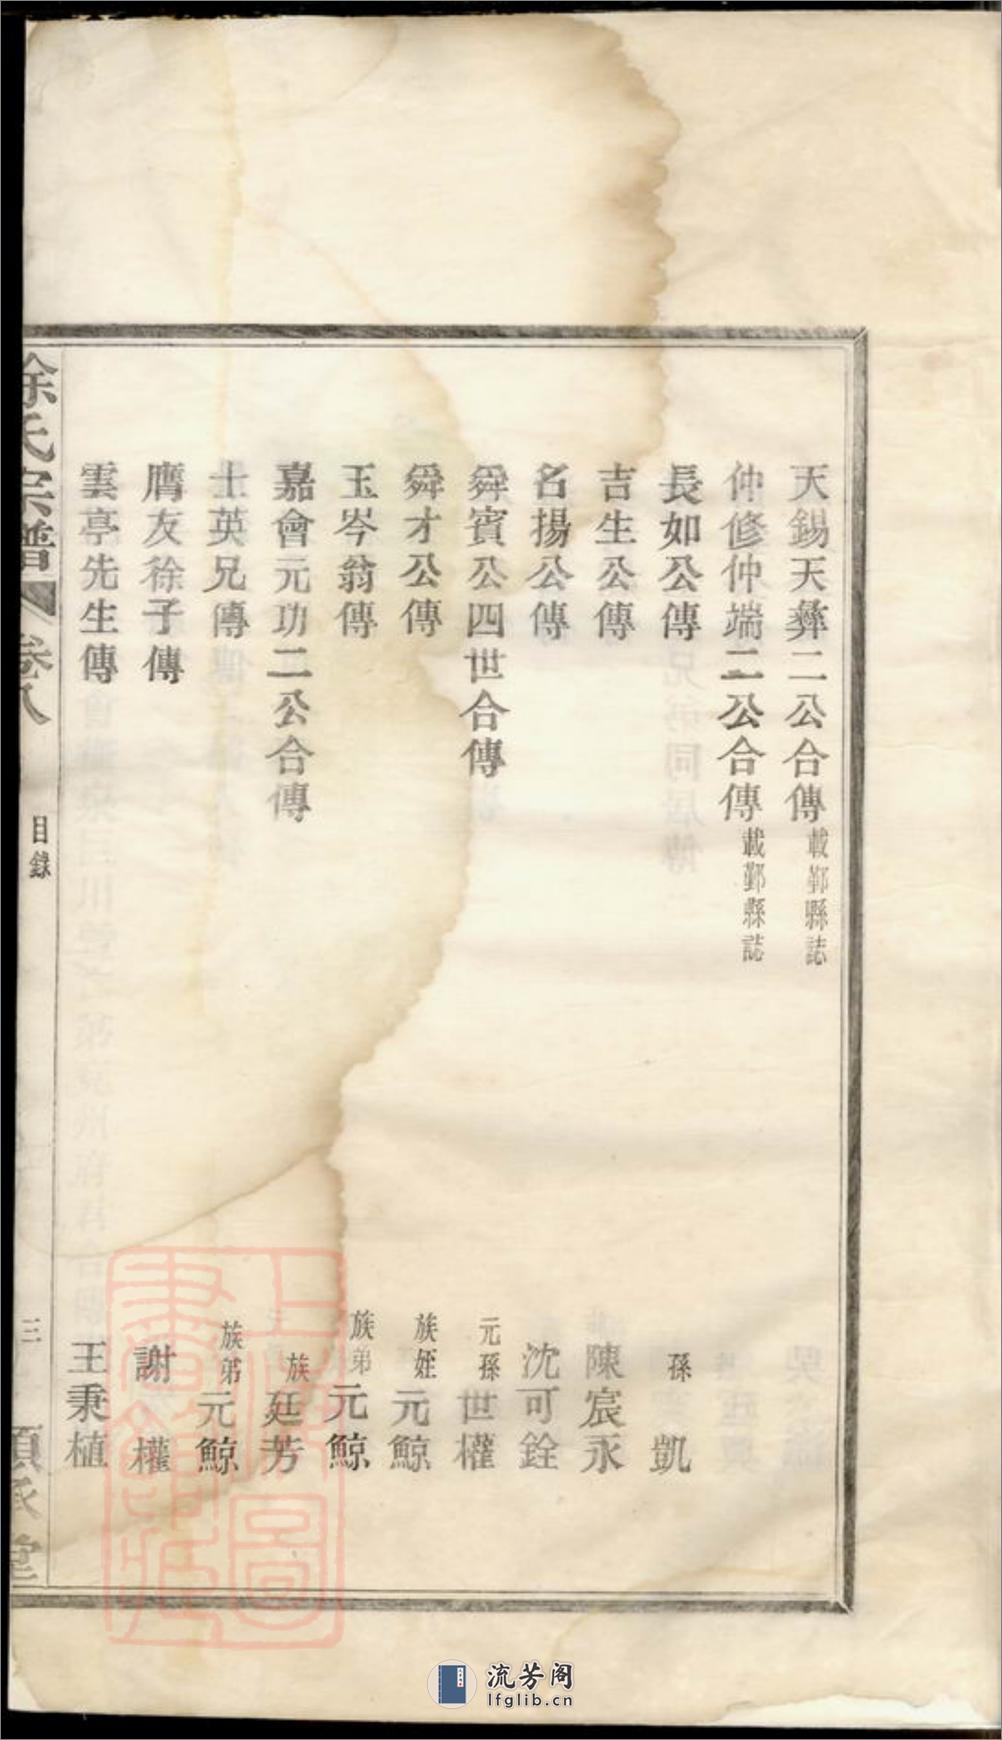 天錫天彝二公合傳 載鄞縣誌
仲修仲端二公合傳 載鄞縣誌
長如公傳 孫 凱
吉生公傳 陳宸永
名揚公傳 沈可銓
舜賓公四世合傳 元孫 世權
舜才公傳 族姪 元鯨
玉岑翁傳 族弟 元鯨
嘉會元功二公合傳 族 廷芳
士英兄傳 族弟 元鯨
膺友徐子傳 謝權
雲亭先生傳 王秉植
徐氏宗譜 卷八 目錄 三 堂
上海圖書館藏
流芳阁
lfglib.cn